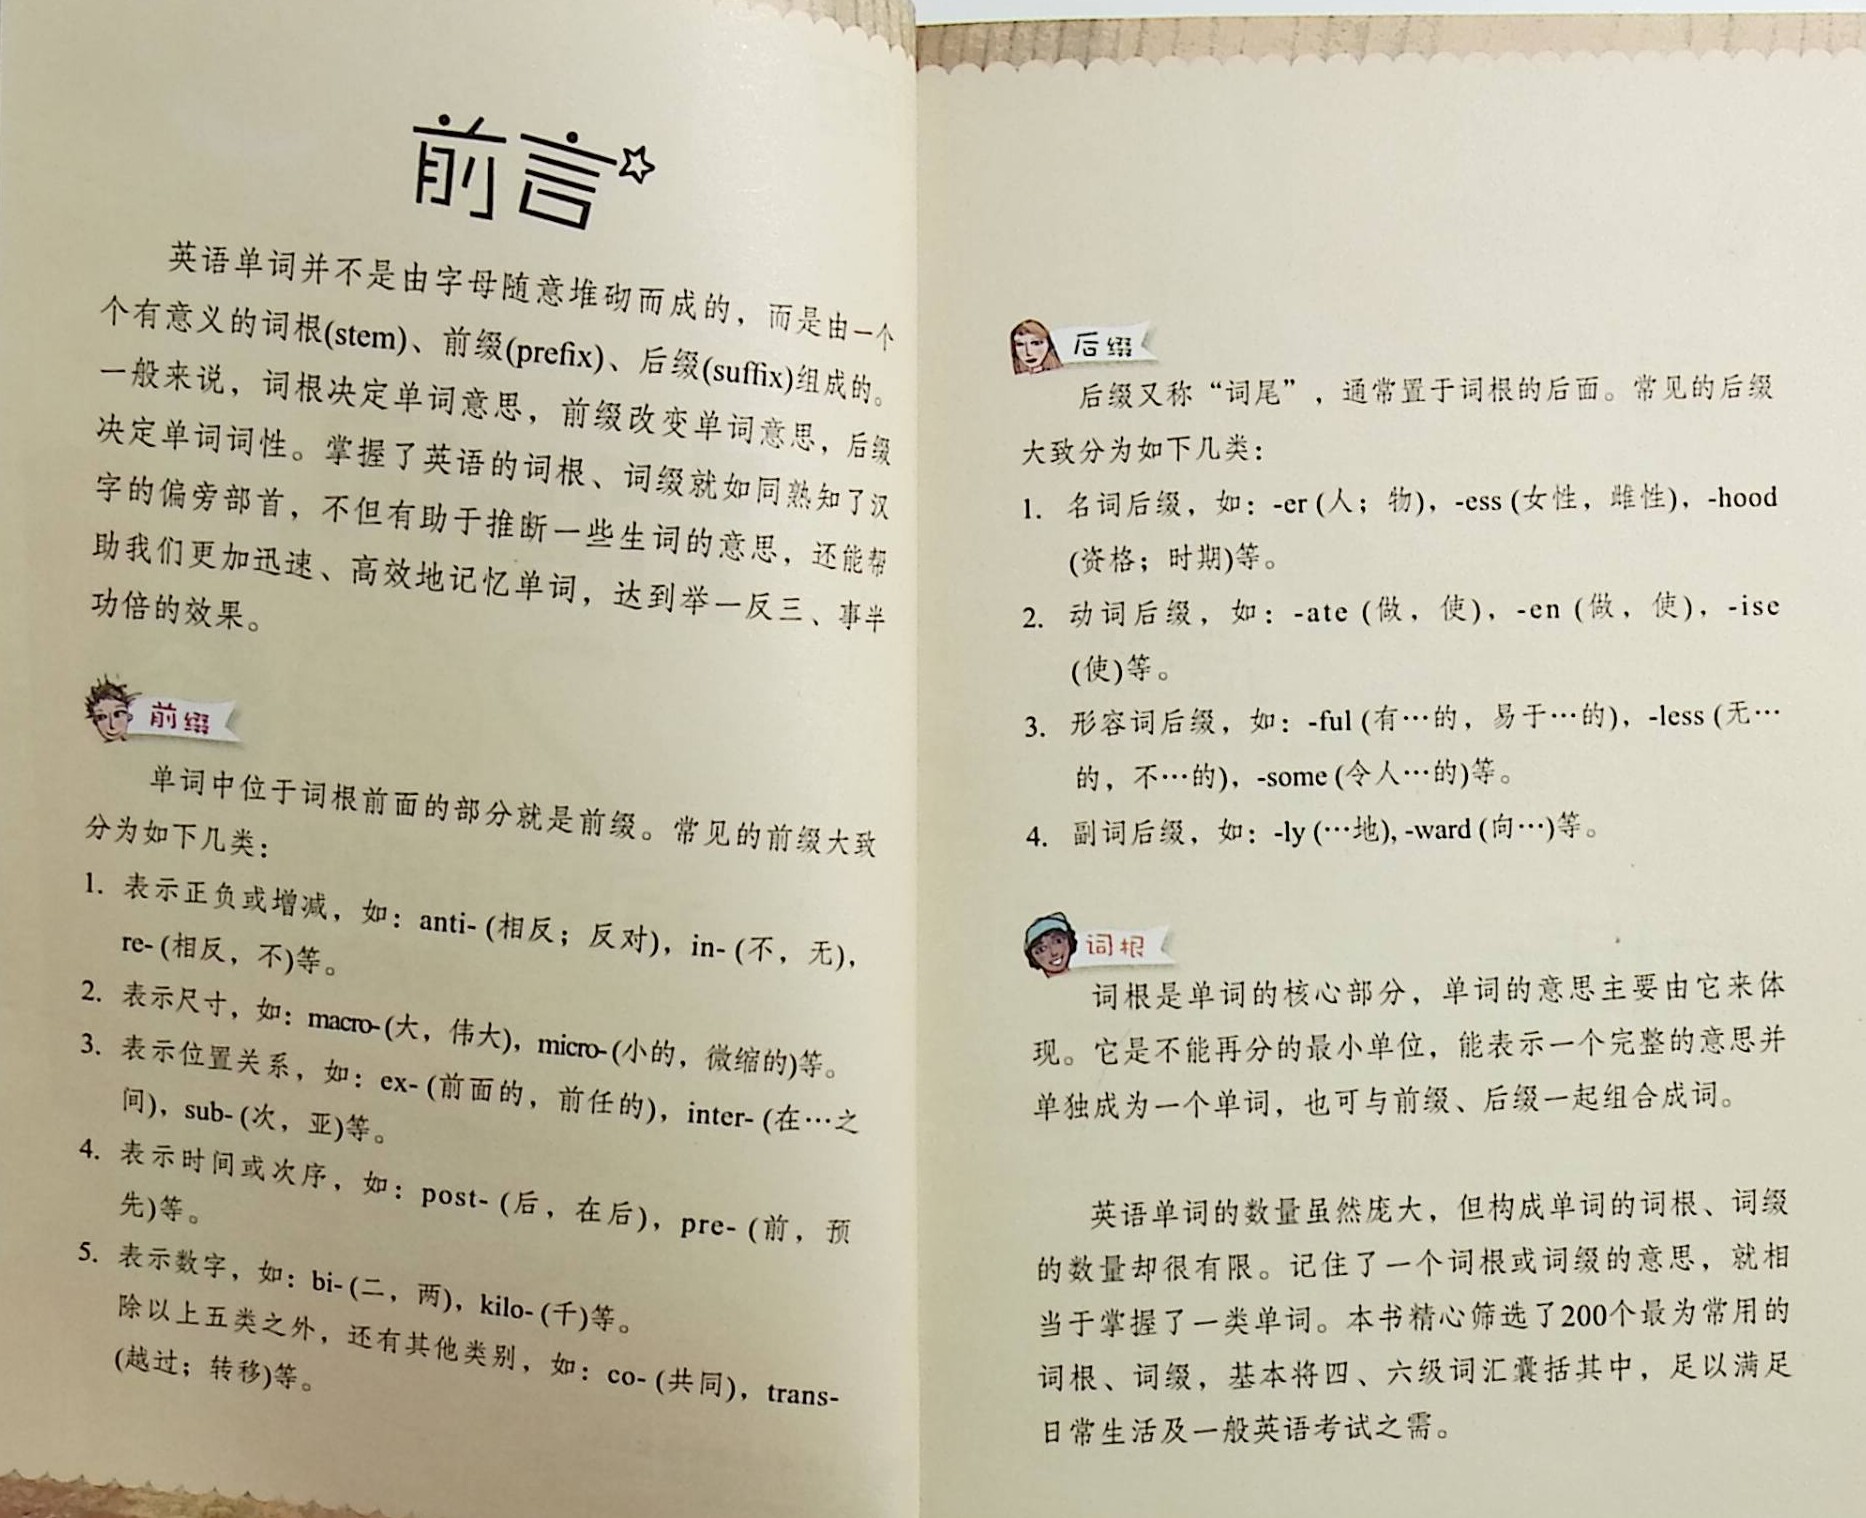 前言
英语单词并不是由字母随意堆砌而成的，而是由一个
个有意义的词根(stem)、前缀(prefix)、后缀(suffix)组成的。
一般来说，词根决定单词意思，前缀改变单词意思，后缀
决定单词词性。掌握了英语的词根、词缀就如同熟知了汉
字的偏旁部首，不但有助于推断一些生词的意思，还能帮
助我们更加迅速、高效地记忆单词，达到举一反三、事半
功倍的效果。
前缀
单词中位于词根前面的部分就是前缀。常见的前缀大致
分为如下几类：
1. 表示正负或增减，如：anti- (相反；反对)，in- (不，无)，
re- (相反，不)等。
2. 表示尺寸，如：macro- (大，伟大)，micro- (小的，微缩的)等。
3. 表示位置关系，如：ex- (前面的，前任的)，inter- (在…之
间)，sub- (次，亚)等。
4. 表示时间或次序，如：post- (后，在后)，pre- (前，预
先)等。
5. 表示数字，如：bi- (二，两)，kilo- (千)等。
除以上五类之外，还有其他类别，如：co- (共同)，trans-
(越过；转移)等。
后缀
后缀又称“词尾”，通常置于词根的后面。常见的后缀
大致分为如下几类：
1. 名词后缀，如：-er (人；物)，-ess (女性，雌性)，-hood
(资格；时期)等。
2. 动词后缀，如：-ate (做，使)，-en (做，使)，-ise
(使)等。
3. 形容词后缀，如：-ful (有…的，易于…的)，-less (无…
的，不…的)，-some (令人…的)等。
4. 副词后缀，如：-ly (…地), -ward (向…)等。
词根
词根是单词的核心部分，单词的意思主要由它来体
现。它是不能再分的最小单位，能表示一个完整的意思并
单独成为一个单词，也可与前缀、后缀一起组合成词。
英语单词的数量虽然庞大，但构成单词的词根、词缀
的数量却很有限。记住了一个词根或词缀的意思，就相
当于掌握了一类单词。本书精心筛选了200个最为常用的
词根、词缀，基本将四、六级词汇囊括其中，足以满足
日常生活及一般英语考试之需。